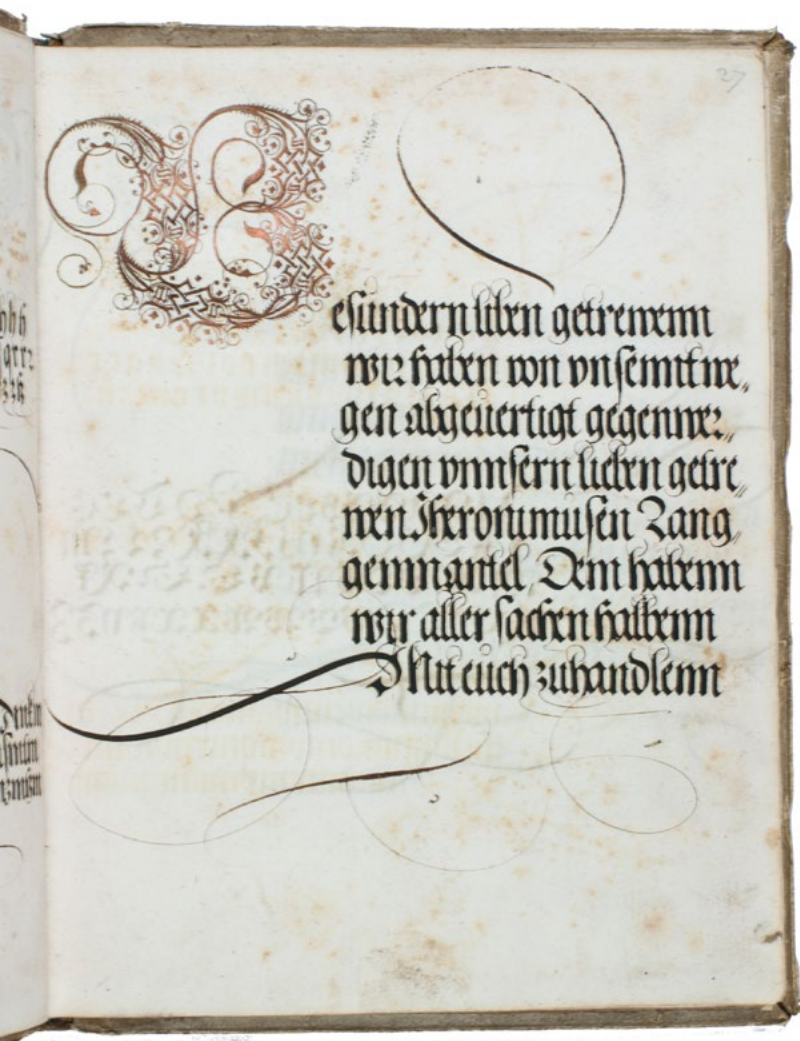 27
Besundern liben getrewenn
wir haben von vnsernttwe„
gen abgeuertigt gegenwer„
digen vnnsern lieben getre„
wen Jheronimusen Zang„
genmantel, Dem habenn
wir aller sachen halbenn
Mitt euch zuhandlenn